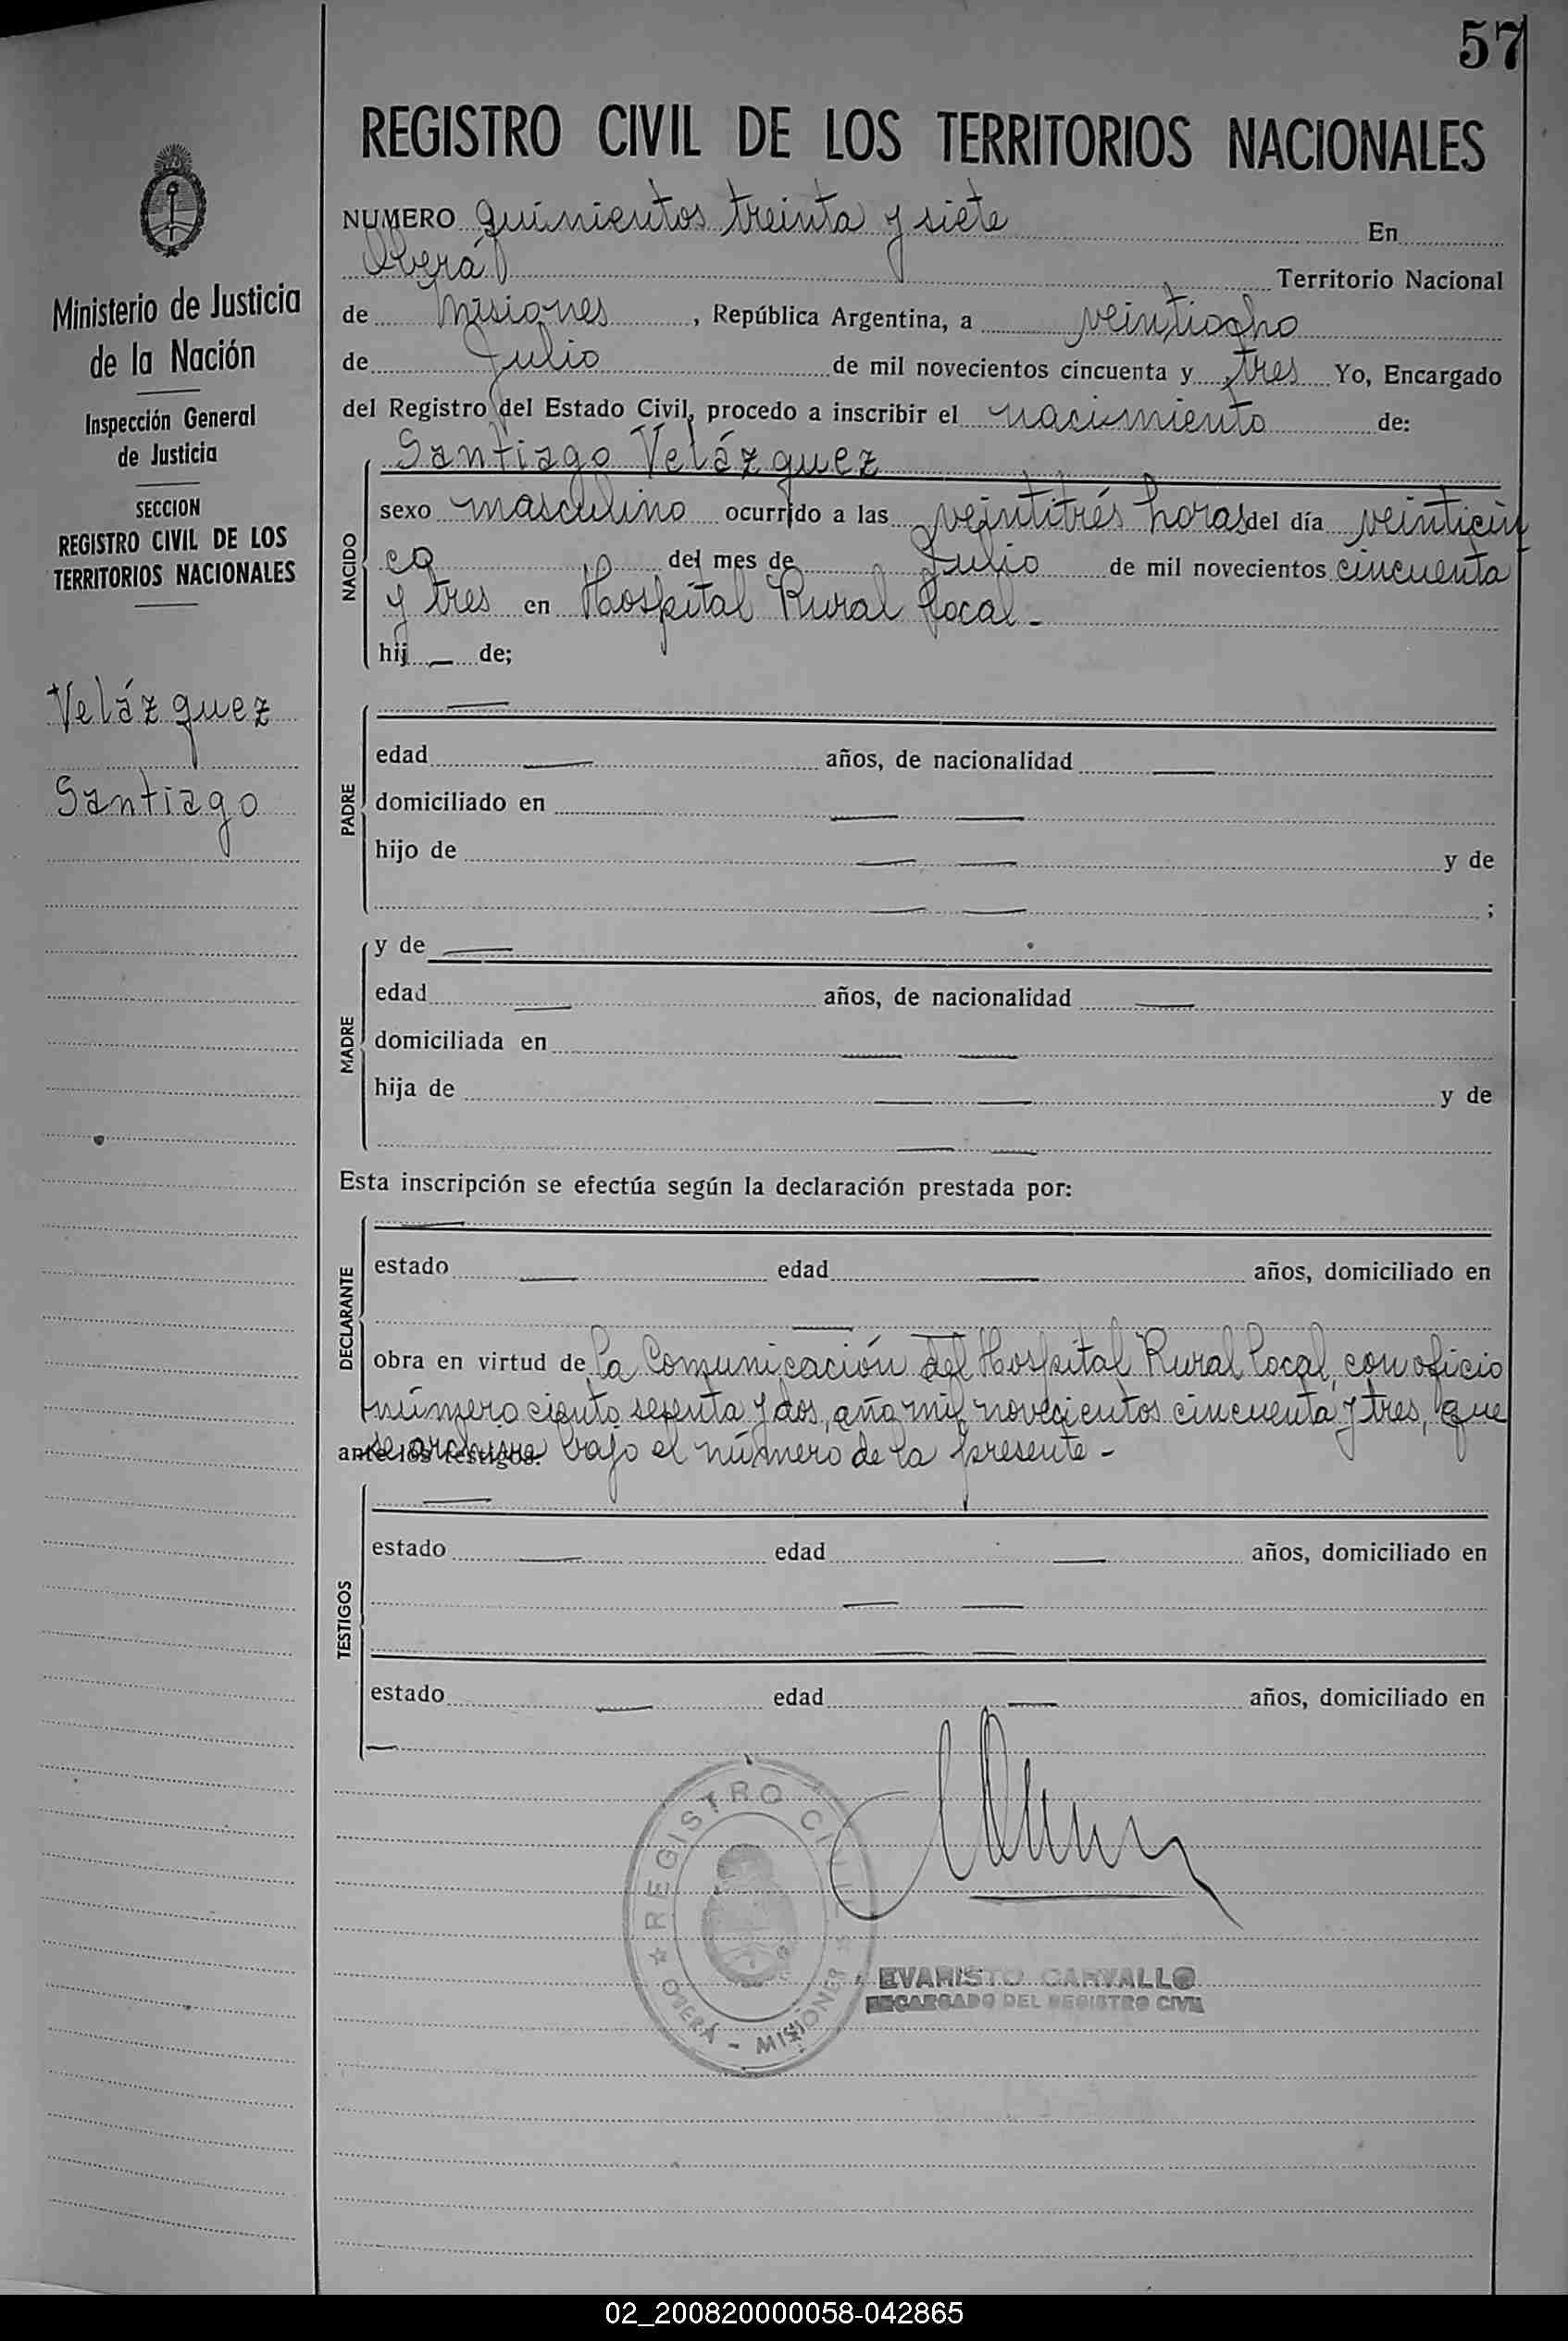 57
REGISTRO CIVIL DE LOS TERRITORIOS NACIONALES
Ministerio de Justicia
de la Nación
Inspección General
de Justicia
SECCION
REGISTRO CIVIL DE LOS
TERRITORIOS NACIONALES
Velázquez
Santiago
NUMERO quinientos treinta y siete En
Oberá Territorio Nacional
de Misiones, República Argentina, a veintiocho
de Julio de mil novecientos cincuenta y tres Yo, Encargado
del Registro del Estado Civil, procedo a inscribir el nacimiento de:
NACIDO
Santiago Velázquez
sexo masculino ocurrido a las veintitrés horas del día veinticin
co del mes de Julio de mil novecientos cincuenta
y tres en Hospital Rural local.-
hij — de;
PADRE
—
edad — años, de nacionalidad —
domiciliado en — —
hijo de — — y de
— — ;
MADRE
y de —
edad — años, de nacionalidad —
domiciliada en — —
hija de — — y de
— —
Esta inscripción se efectúa según la declaración prestada por:
DECLARANTE
—
estado — edad — años, domiciliado en
— —
obra en virtud de la Comunicación del Hospital Rural local, con oficio
número ciento setenta y dos, año mil novecientos cincuenta y tres, que
ante los testigos: se archiva bajo el número de la presente-
TESTIGOS
—
estado — edad — años, domiciliado en
— —
— —
estado — edad — años, domiciliado en
—
REGISTRO CIVIL
OBERÁ - MISIONES
EVARISTO CARVALLO
ENCARGADO DEL REGISTRO CIVIL
02_200820000058-042865